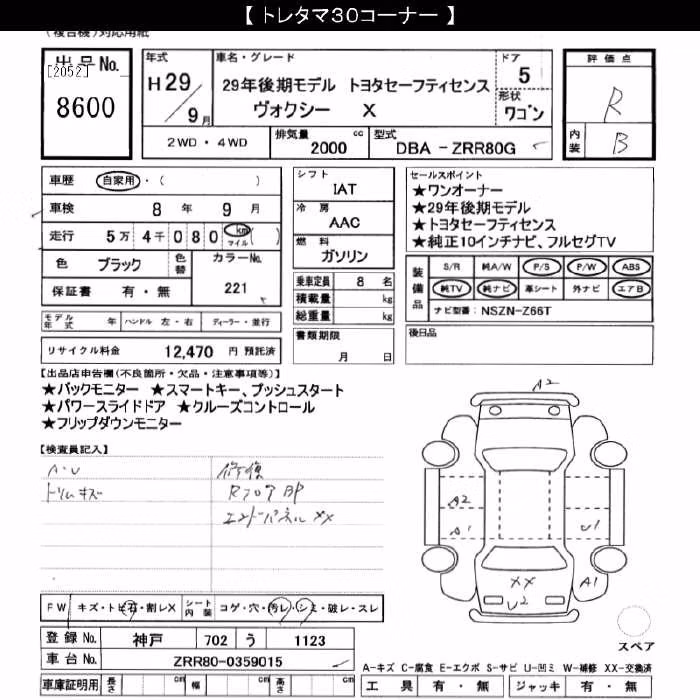 【 トレタマ30コーナー 】
(複合機)対応用紙
出品No.
[2052]
8600
年式
H 29/9月
車名・グレード
29年後期モデル トヨタセーフティセンス
ヴォクシー X
ドア
5
形状
ワゴン
評価点
R
内装
B
2WD・4WD
排気量
2000 cc
型式
DBA - ZRR80G
車歴 自家用・( )
車検 8年 9月
走行 5万 4千 0 8 0 km マイル ( )
色 ブラック 色替 カラーNo.
保証書 有・無 221
モデル年式 年 ハンドル 左・右 ディーラー・並行
リサイクル料金 12,470 円 預託済
シフト
IAT
冷房
AAC
燃料
ガソリン
乗車定員 8 名
積載量 kg
総重量 kg
書類期限
月 日
セールスポイント
★ワンオーナー
★29年後期モデル
★トヨタセーフティセンス
★純正10インチナビ、フルセグTV
装備品
S/R 純A/W P/S P/W ABS
純TV 純ナビ 革シート 外ナビ エアB
ナビ型番: NSZN-Z66T
後日品
【出品店申告欄(不良箇所・欠品・注意事項等)】
★バックモニター ★スマートキー、プッシュスタート
★パワースライドドア ★クルーズコントロール
★フリップダウンモニター
【検査員記入】
A・U
トリムキズ
修復
Rフロア BP
エンドパネル XX
A2
A2
A1
U1
XX
U2
A1
スペア
FW キズ・トビ石・割レX シート内装 コゲ・穴・汚レ・シミ・破レ・スレ
登録No. 神戸 702 う 1123
車台No. ZRR80-0359015
車庫証明用 長さ cm 幅 cm 高さ cm
A-キズ C-腐食 E-エクボ S-サビ U-凹ミ W-補修 XX-交換済
工具 有・無 ジャッキ 有・無